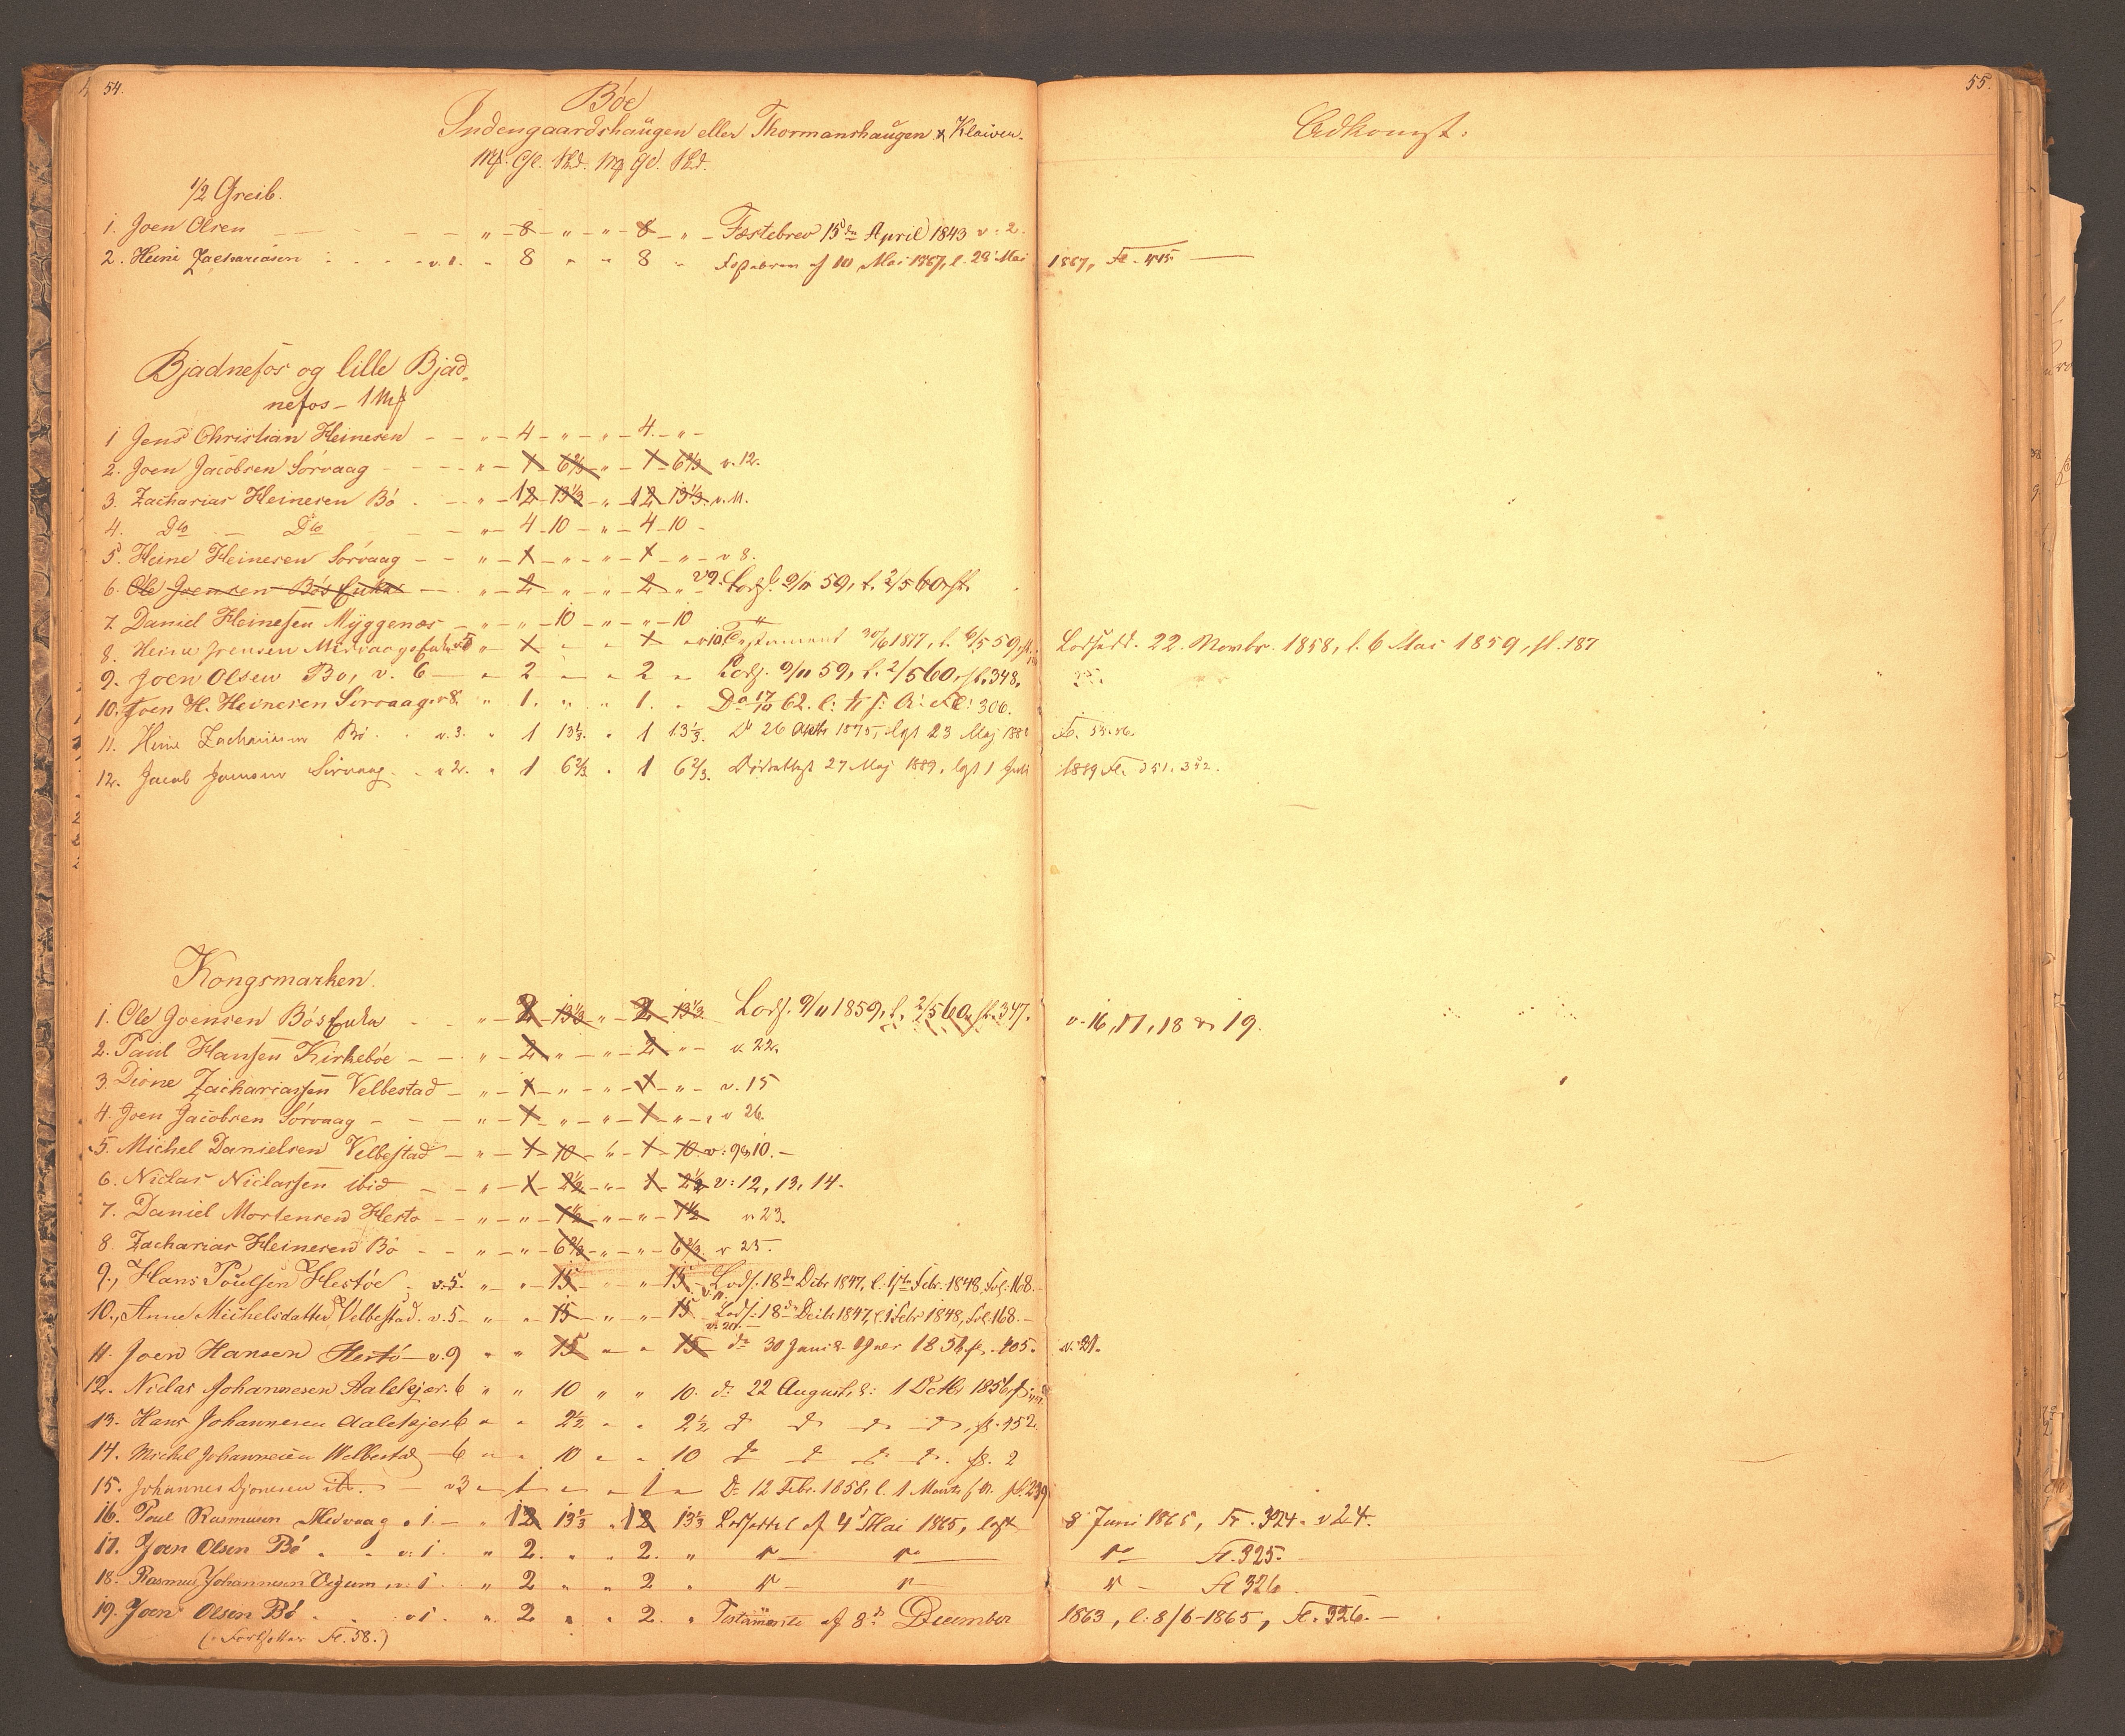 54.
55.
Bóe
Indengaardshaügen eller Thormanshaügen & Klaiven.
Adkomst:
Mk. Gl. Skd. Mk Gl. Skd.
1/2 Greib.
1. Joen Olsen " 8 " " 8 " Fæstebrev 15de April 1843 v: 2.
2. Heine Zachariasen v. 1. " 8 " " 8 " Festebrev af 10 Mai 1867, l. 28 Mai 1867, Fl. 445
Bjadnefos og lille Bjad-
nefos - 1 Mk
1 Jens Christian Heinesen " 4 " " 4 "
2. Joen Jacobsen Sórvaag " 1 6 2/3 " 1 6 2/3 v. 12.
3. Zacharias Heinesen Bó " 12 13 1/3 " 12 13 1/3 v. 11.
4. Do Do " 4 10 " 4 10
5. Heine Heinesen Sórvaag " 1 " " 1 " v 8.
6. Ole Joensen Bósfuka " 2 " " 2 " v9. Lods. 9/11 59, l. 2/5 60, fl.
7. Daniel Heinesen Myggenæs " " 10 " " 10 "
8. Heine Jensen Midvaag v5 " 1 " " 1 " v10. Testament 30/6 1817, l. 6/5 59, fl. Lodsedd. 22. Novbr. 1858, l. 6 Mai 1859, fl. 187
9. Joen Olsen Bo, v. 6 " 2 " " 2 " Lods. 9/11 59, l. 2/5 60, fl. 348.
10. Joen H. Heinesen Sórvaag v8 " 1. " " 1. " Do 17/10 62. l: Fl: 306.
11. Heine Zachariasen Bó v. 3. " 1 13 1/3 " 1 13 1/3. Do 26 1875, lgt 23 Maj 188 Fl. 55.56.
12. Jacob Joensen Sórvaag v 2. " 1 6 2/3 " 1 6 2/3. 27 Maj 1889, lgt 1 Juli 1889 Fl. 351. 352.
Kongsmarken.
1. Ole Joensen Bósfuka " 2 13 1/3 " 2 13 1/3 Lods. 9/11 1859, l. 2/5 60, fl. 347. v. 16, 17, 18 & 19.
2. Paul Hansen Kirkebóe " 2 " " 2 " v. 22.
3. Dione Zachariassen Velbestad " 1 " " 1 " v. 15
4. Joen Jacobsen Sórvaag " 1 " " 1 " v 26.
5. Michel Danielsen Velbestad " 1 10 " 1 10 v: 9 & 10.
6. Niclas Niclassen ibid " 1 2 1/2 " 1 2 1/2 v: 12, 13, 14.
7. Daniel Mortensen Hesto " " 1 1/2 " " 1 1/2 v. 23.
8. Zacharias Heinesen Bó " " 6 2/3 " " 6 2/3 v 25.
9., Hans Poülsen Hestóe v. 5. " " 15 " " 15 v. 11. Lods. 18de Decbr 1847, l: 1ste Febr. 1848, Fol: 168.
10., Anne Michelsdatter Velbestad. v. 5 " " 15 " " 15 v. 20. Lods: 18de Decbr 1847, l: 1 Febr 1848, Fol: 168.
11. Joen Hansen Hestó v. 9 " " 15 " " 15 do 30 Juni 1854 fl. 405. v. 21.
12. Niclas Johannesen Aalekjær. 6 " " 10 " " 10. do 22 August, l: 1 Octbr 1856, fl. 451.
13. Hans Johannesen Aalekjær 6 " " 2 1/2 " " 2 1/2 do do do do, fl. 452.
14. Michel Johannesen Welbestad 6 " " 10 " " 10 do do do do. fl. 2
15. Johannes Djonesen ib. v3 " 1 " " 1 " Do 12 Febr. 1858, l. 1 Marts s. A. fl. 239
16. Poul Rasmusen Midvaag v 1 " 12 13 1/3 " 12 13 1/3 Lodseddel af 4 Mai 1865, læst 8 Juni 1865, Fl. 324. v 24.
17. Joen Olsen Bó v: 1. " 2. " " 2. " do do do Fl. 325.
18. Rasmus Johannesen Viqum v: 1 " 2 " " 2 " do do do Fl 326.
19. Joen Olsen Bó v 1. " 2 " " 2. " Testamente af 8de December 1863, l: 8/6 1865, Fl. 326.
(Fortsættes Fl. 58.)